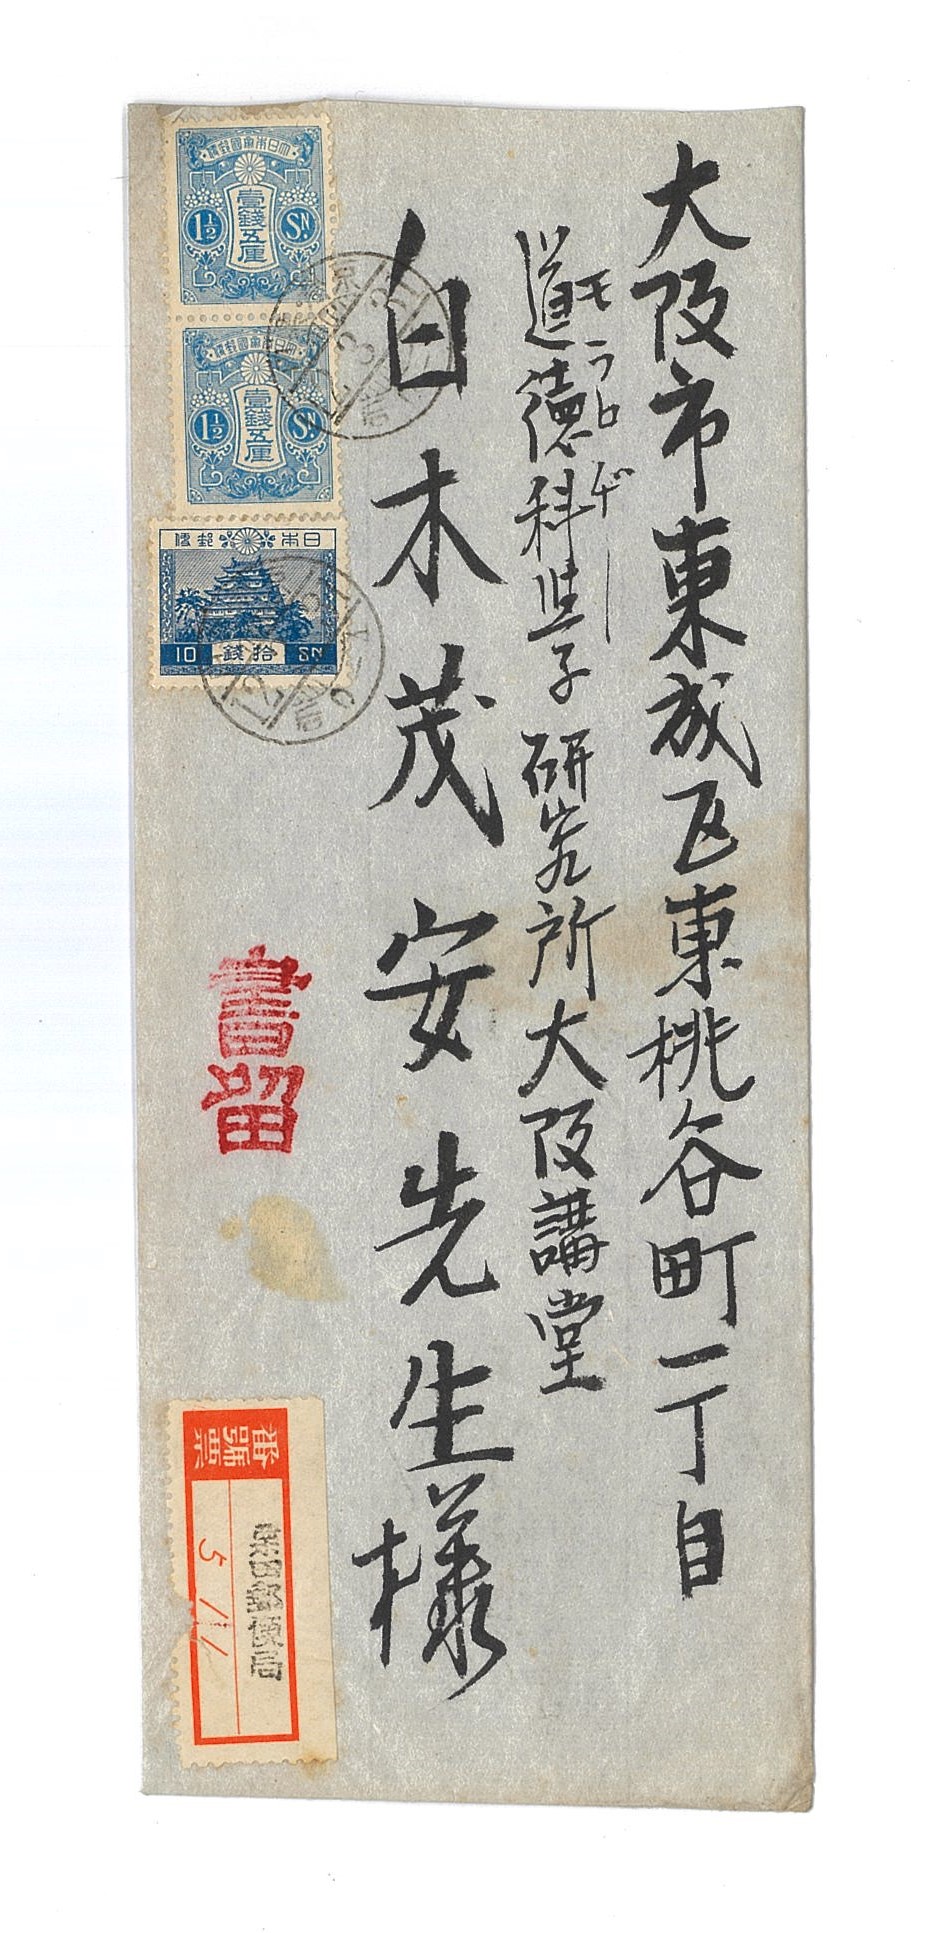 大阪市東成区東桃谷町一丁目
モラロヂー
道徳科学研究所大阪講堂
白木茂安先生様
大日本帝國郵便
壹錢五厘
1½ SN.
大日本帝國郵便
壹錢五厘
1½ SN.
日本郵便
10 拾錢 SN
書留
番號票
郵便局